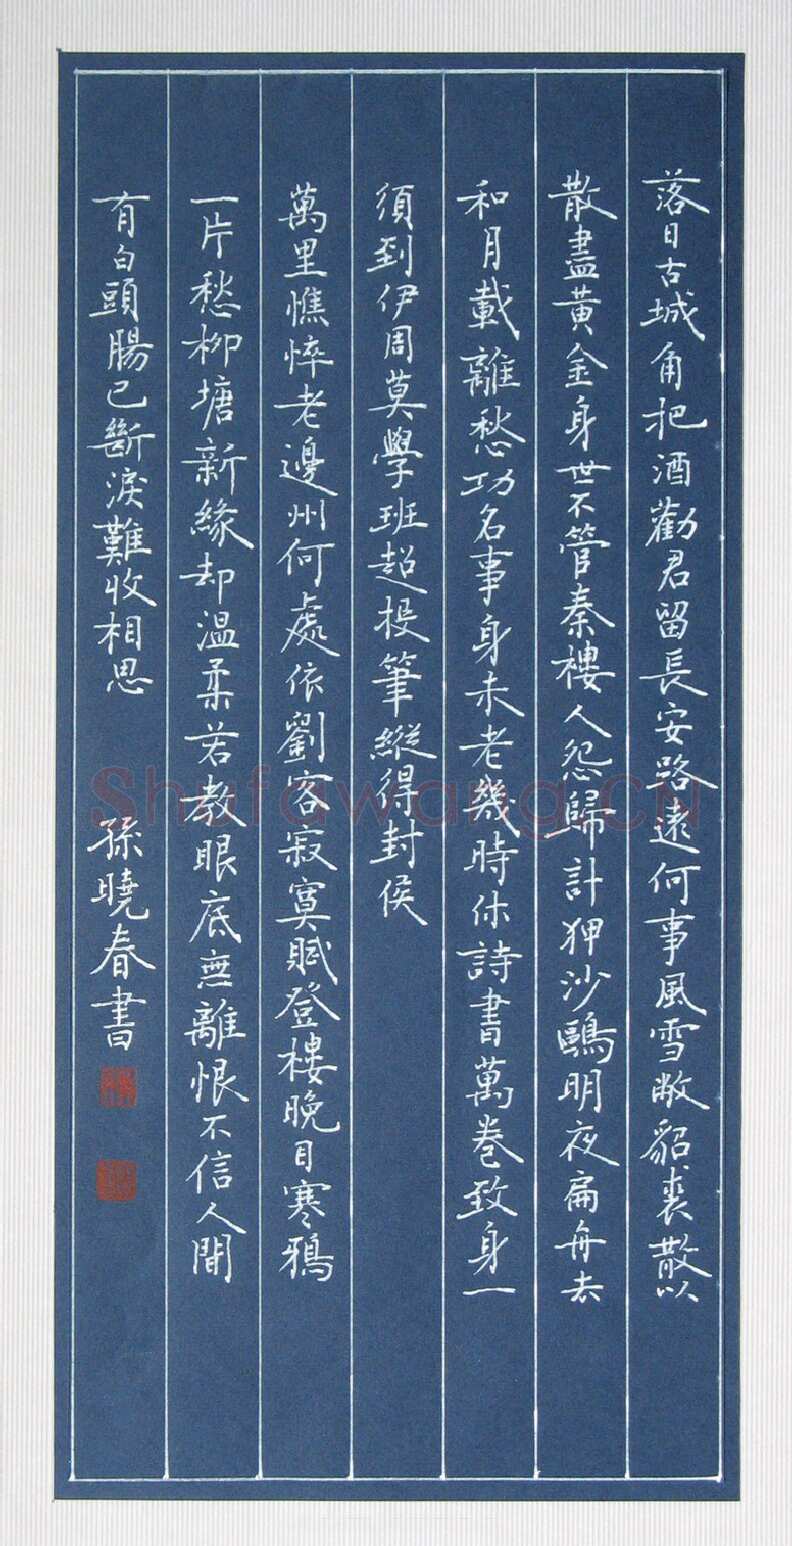 落日古城角把酒勸君留長安路遠何事風雪敝貂裘散以
散盡黃金身世不管秦樓人怨歸計狎沙鷗明夜扁舟去
和月載離愁功名事身未老幾時休詩書萬卷致身一
須到伊周莫學班超投筆縱得封侯
萬里憔悴老邊州何處依劉客寂寞賦登樓晚日寒鴉
一片愁柳塘新緣却溫柔若教眼底無離恨不信人間
有白頭腸已斷淚難收相思
孫曉春書
Shufawang.cn